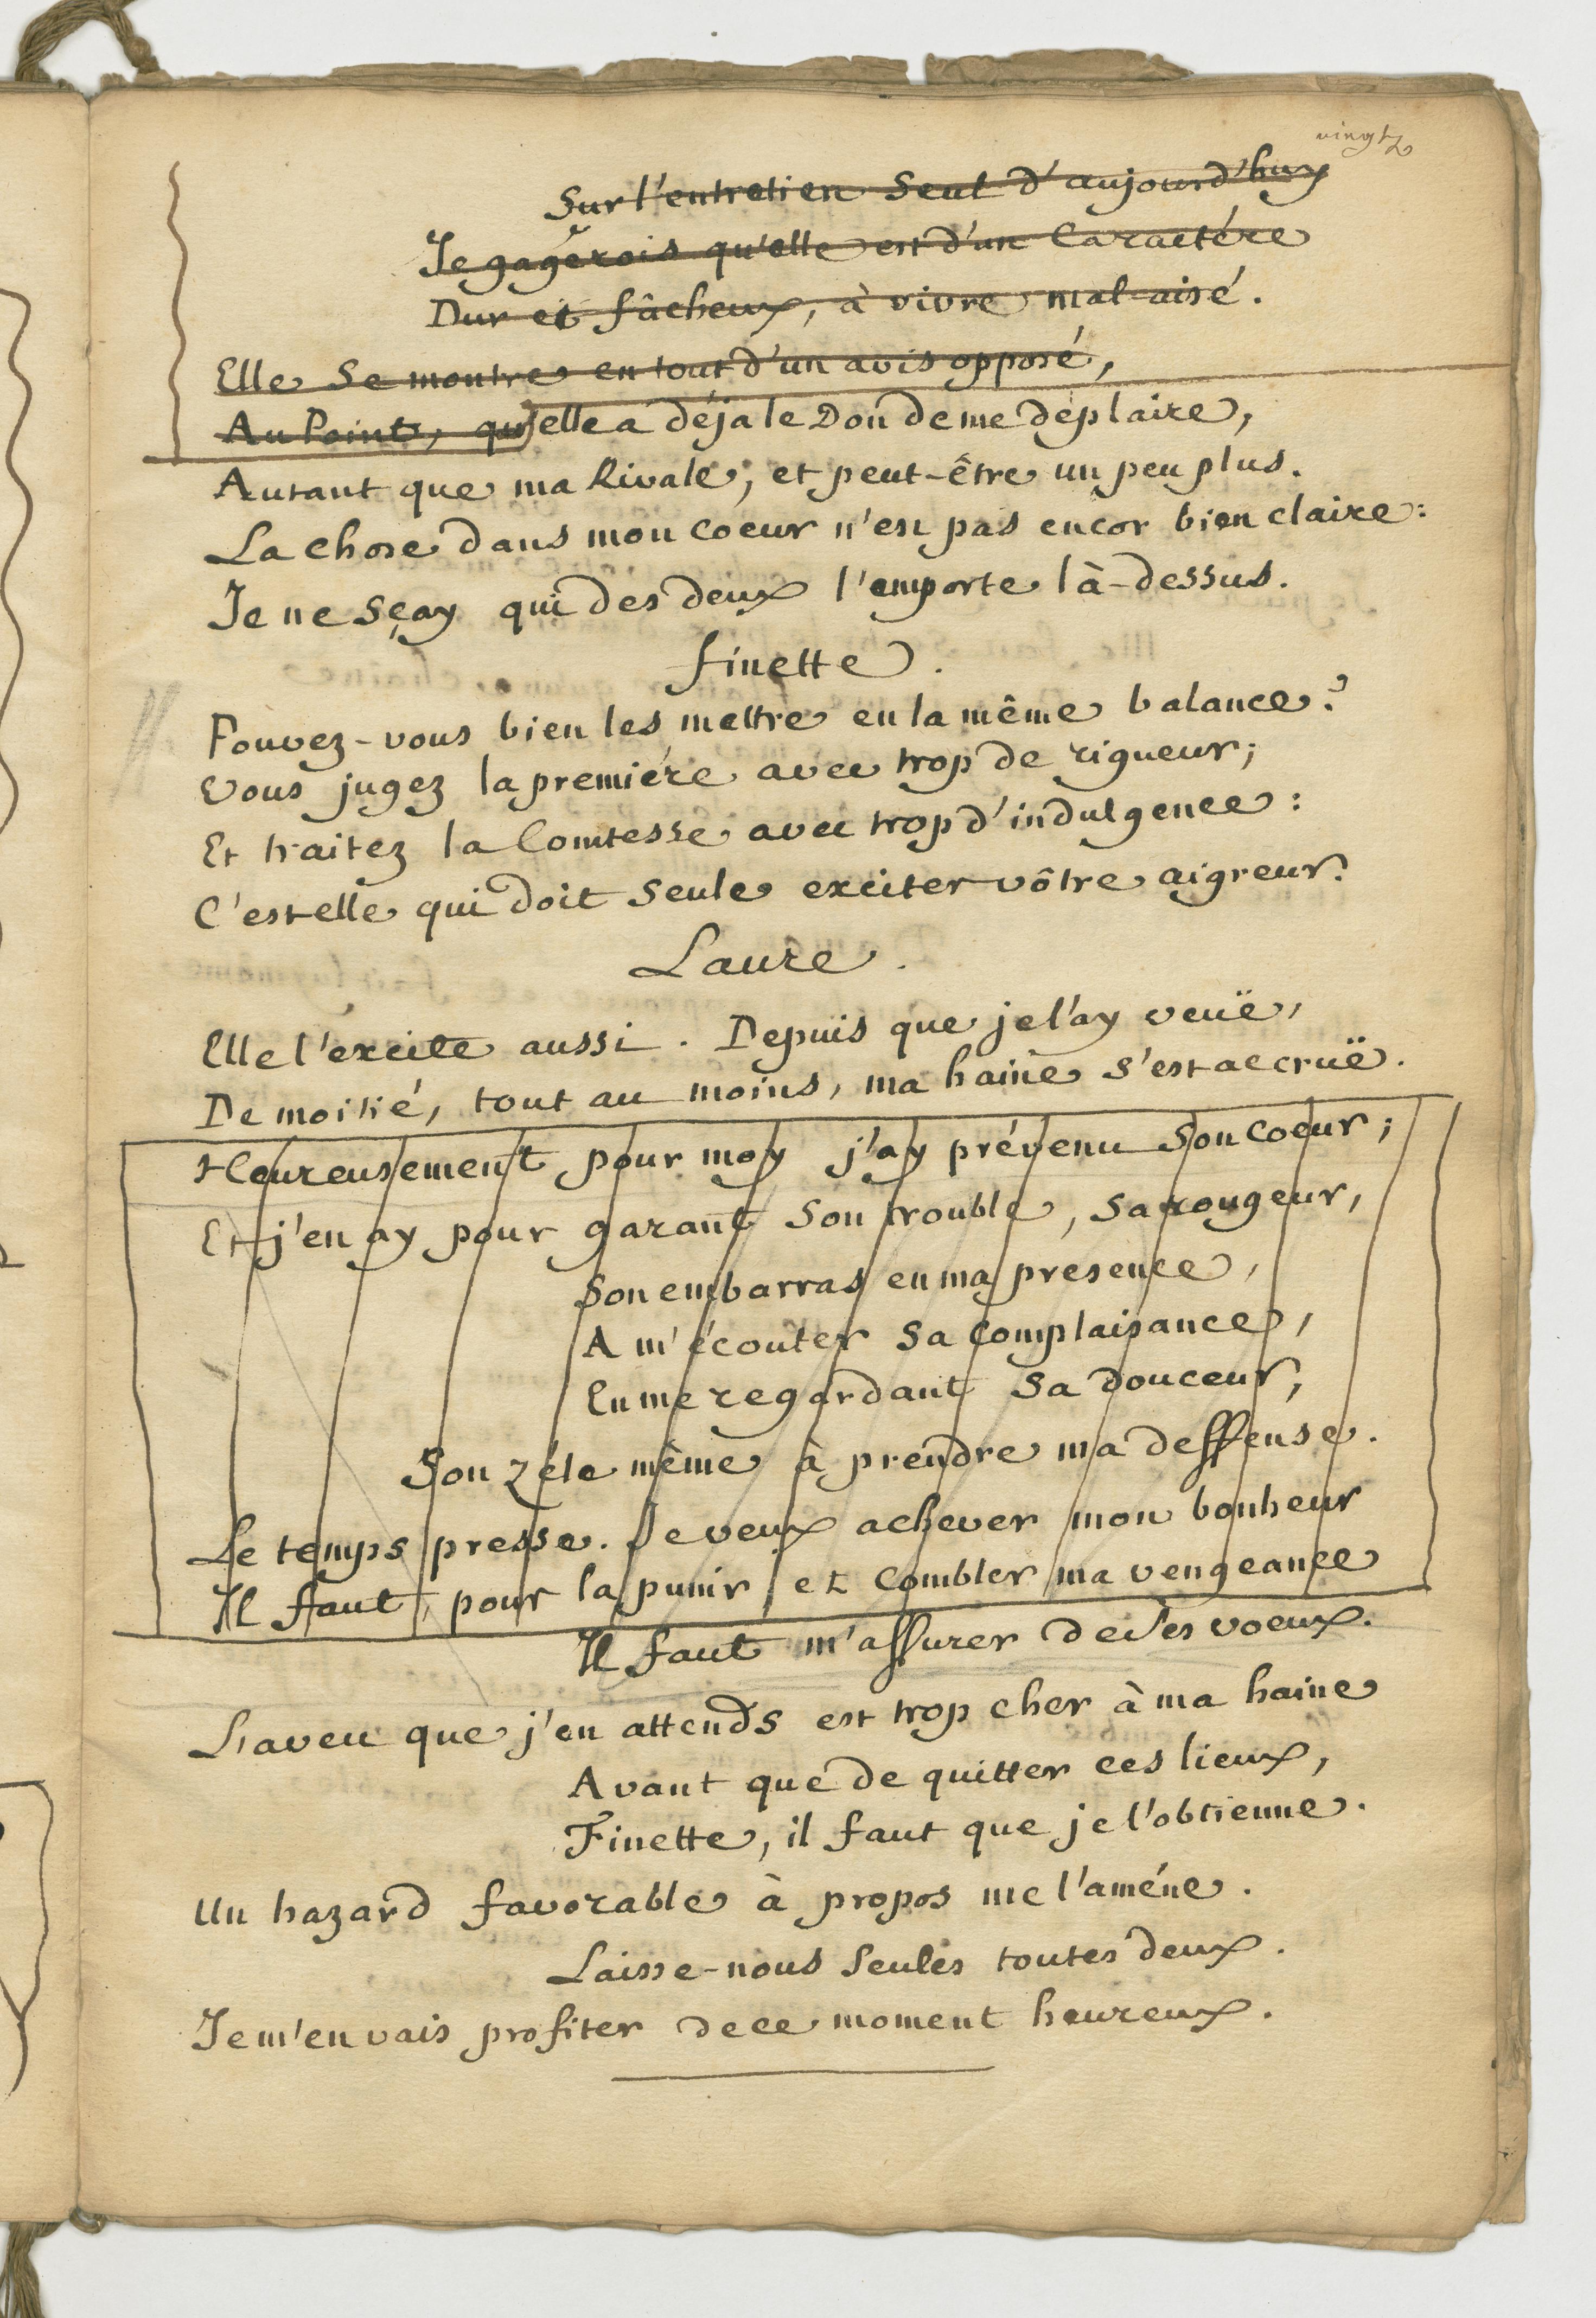 vingt
Sur l'entretien Seul d'aujourd'huy
Je gagerois qu'elle est d'un Caractére
Dur et fâcheux, à vivre mal-aisé.
Elle Se montre en tout d'un avis opposé,
Au Point, qu'elle a déja le Don de me déplaire,
Autant que ma Rivale, et peut-être un peu plus.
La chose dans mon Coeur n'est pas encor bien claire:
Je ne Sçay qui des deux l'emporte là-dessus.
finette.
Pouvez-vous bien les mettre en la même balance?
Vous jugez la premiére avec trop de rigueur;
Et traitez la Comtesse avec trop d'indulgence:
C'est elle qui doit Seule exciter vôtre aigreur.
Laure.
Elle l'excite aussi. Depuis que je l'ay veuë,
De moitié, tout au moins, ma haine s'est accruë.
Heureusement pour moy j'ay prévenu Son Coeur;
Et j'en ay pour garant Son trouble, Sa rougeur,
Son embarras en ma presence,
A m'écouter Sa Complaisance,
En me regardant Sa douceur,
Son zéle même à prendre ma deffense.
Le temps presse. Je veux achever mon bonheur
Il faut, pour la punir, et Combler ma vengeance
Il faut m'assurer de Ses voeux.
L'aveu que j'en attends est trop cher à ma haine
Avant que de quitter ces lieux,
Finette, il faut que je l'obtienne.
Un hazard favorable à propos me l'améne.
Laisse-nous Seules toutes deux.
Je m'en vais profiter de ce moment heureux.